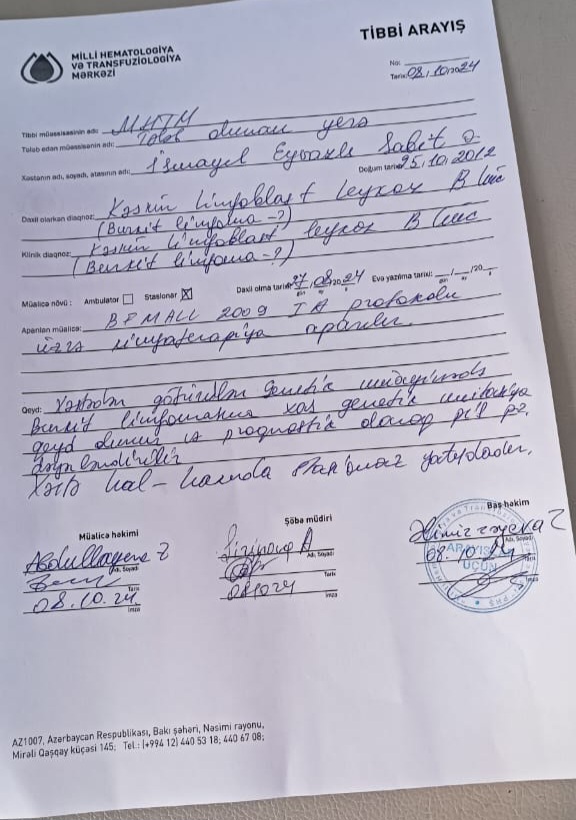 MİLLİ HEMATOLOGİYA
VƏ TRANSFUZİOLOGİYA
MƏRKƏZİ
TİBBİ ARAYIŞ
No:
Tarix: 08.10.2024
Tibbi müəssisəsinin adı: MHTM
Tələb edən müəssisənin adı: Tələb olunan yerə
Xəstənin adı, soyadı, atasının adı: İsmayıl Eyvazlı Sabit o
Doğum tarixi 25.10.2012
Daxil olarkən diaqnoz: Kəskin limfoblast leykoz B
(Burkit limfoma -?)
Klinik diaqnoz: Kəskin limfoblast leykoz B
(Burkit limfoma -?)
Müalicə növü: Ambulator Stasionar X Daxil olma tarixi 27.08.2024 Evə yazılma tarixi: __/__/20__
Aparılan müalicə: BFM ALL 2009 IA protokolu
üzrə kimyaterapiya aparılır.
Qeyd: Xəstədən götürülən genetik
Burkit limfomasına xas genetik
qeyd olunur proqnostik olaraq
Xəstə hal-hazırda stasionar
Müalicə həkimi
Abdullayeva Z
Adı, Soyadı
Tarix
08.10.24
İmza
Şöbə müdiri
Adı, Soyadı
Tarix
08.10.24
İmza
Baş həkim
Adı, Soyadı
08.10.24
Tarix
İmza
ARAYIŞ
ÜÇÜN
AZ1007, Azərbaycan Respublikası, Bakı şəhəri, Nəsimi rayonu,
Mirəli Qaşqay küçəsi 145; Tel.: (+994 12) 440 53 18; 440 67 08;